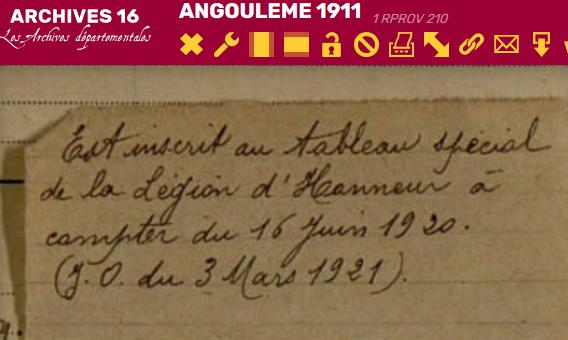 ARCHIVES 16
Les Archives départementales
ANGOULEME 1911 1 RPROV 210
Est inscrit au tableau spécial
de la Légion d'Honneur à
compter du 16 Juin 1920.
(J. O. du 3 Mars 1921).